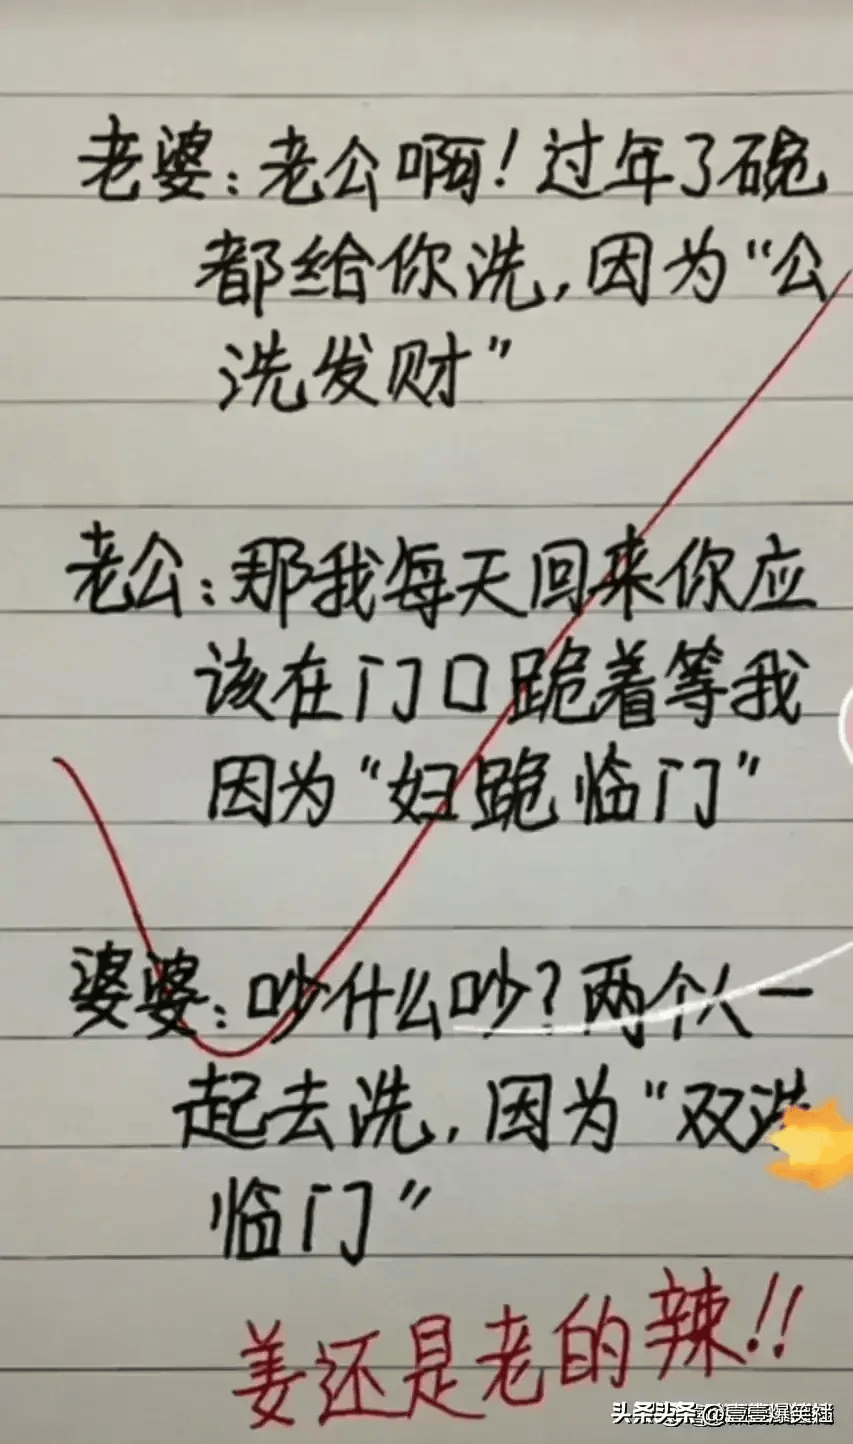 老婆：老公啊！过年了碗
都给你洗，因为“公
洗发财”
老公：那我每天回来你应
该在门口跪着等我
因为“妇跪临门”
婆婆：吵什么吵？两个人一
起去洗，因为“双洗
临门”
姜还是老的辣！！
头条 @壹壹爆笑社